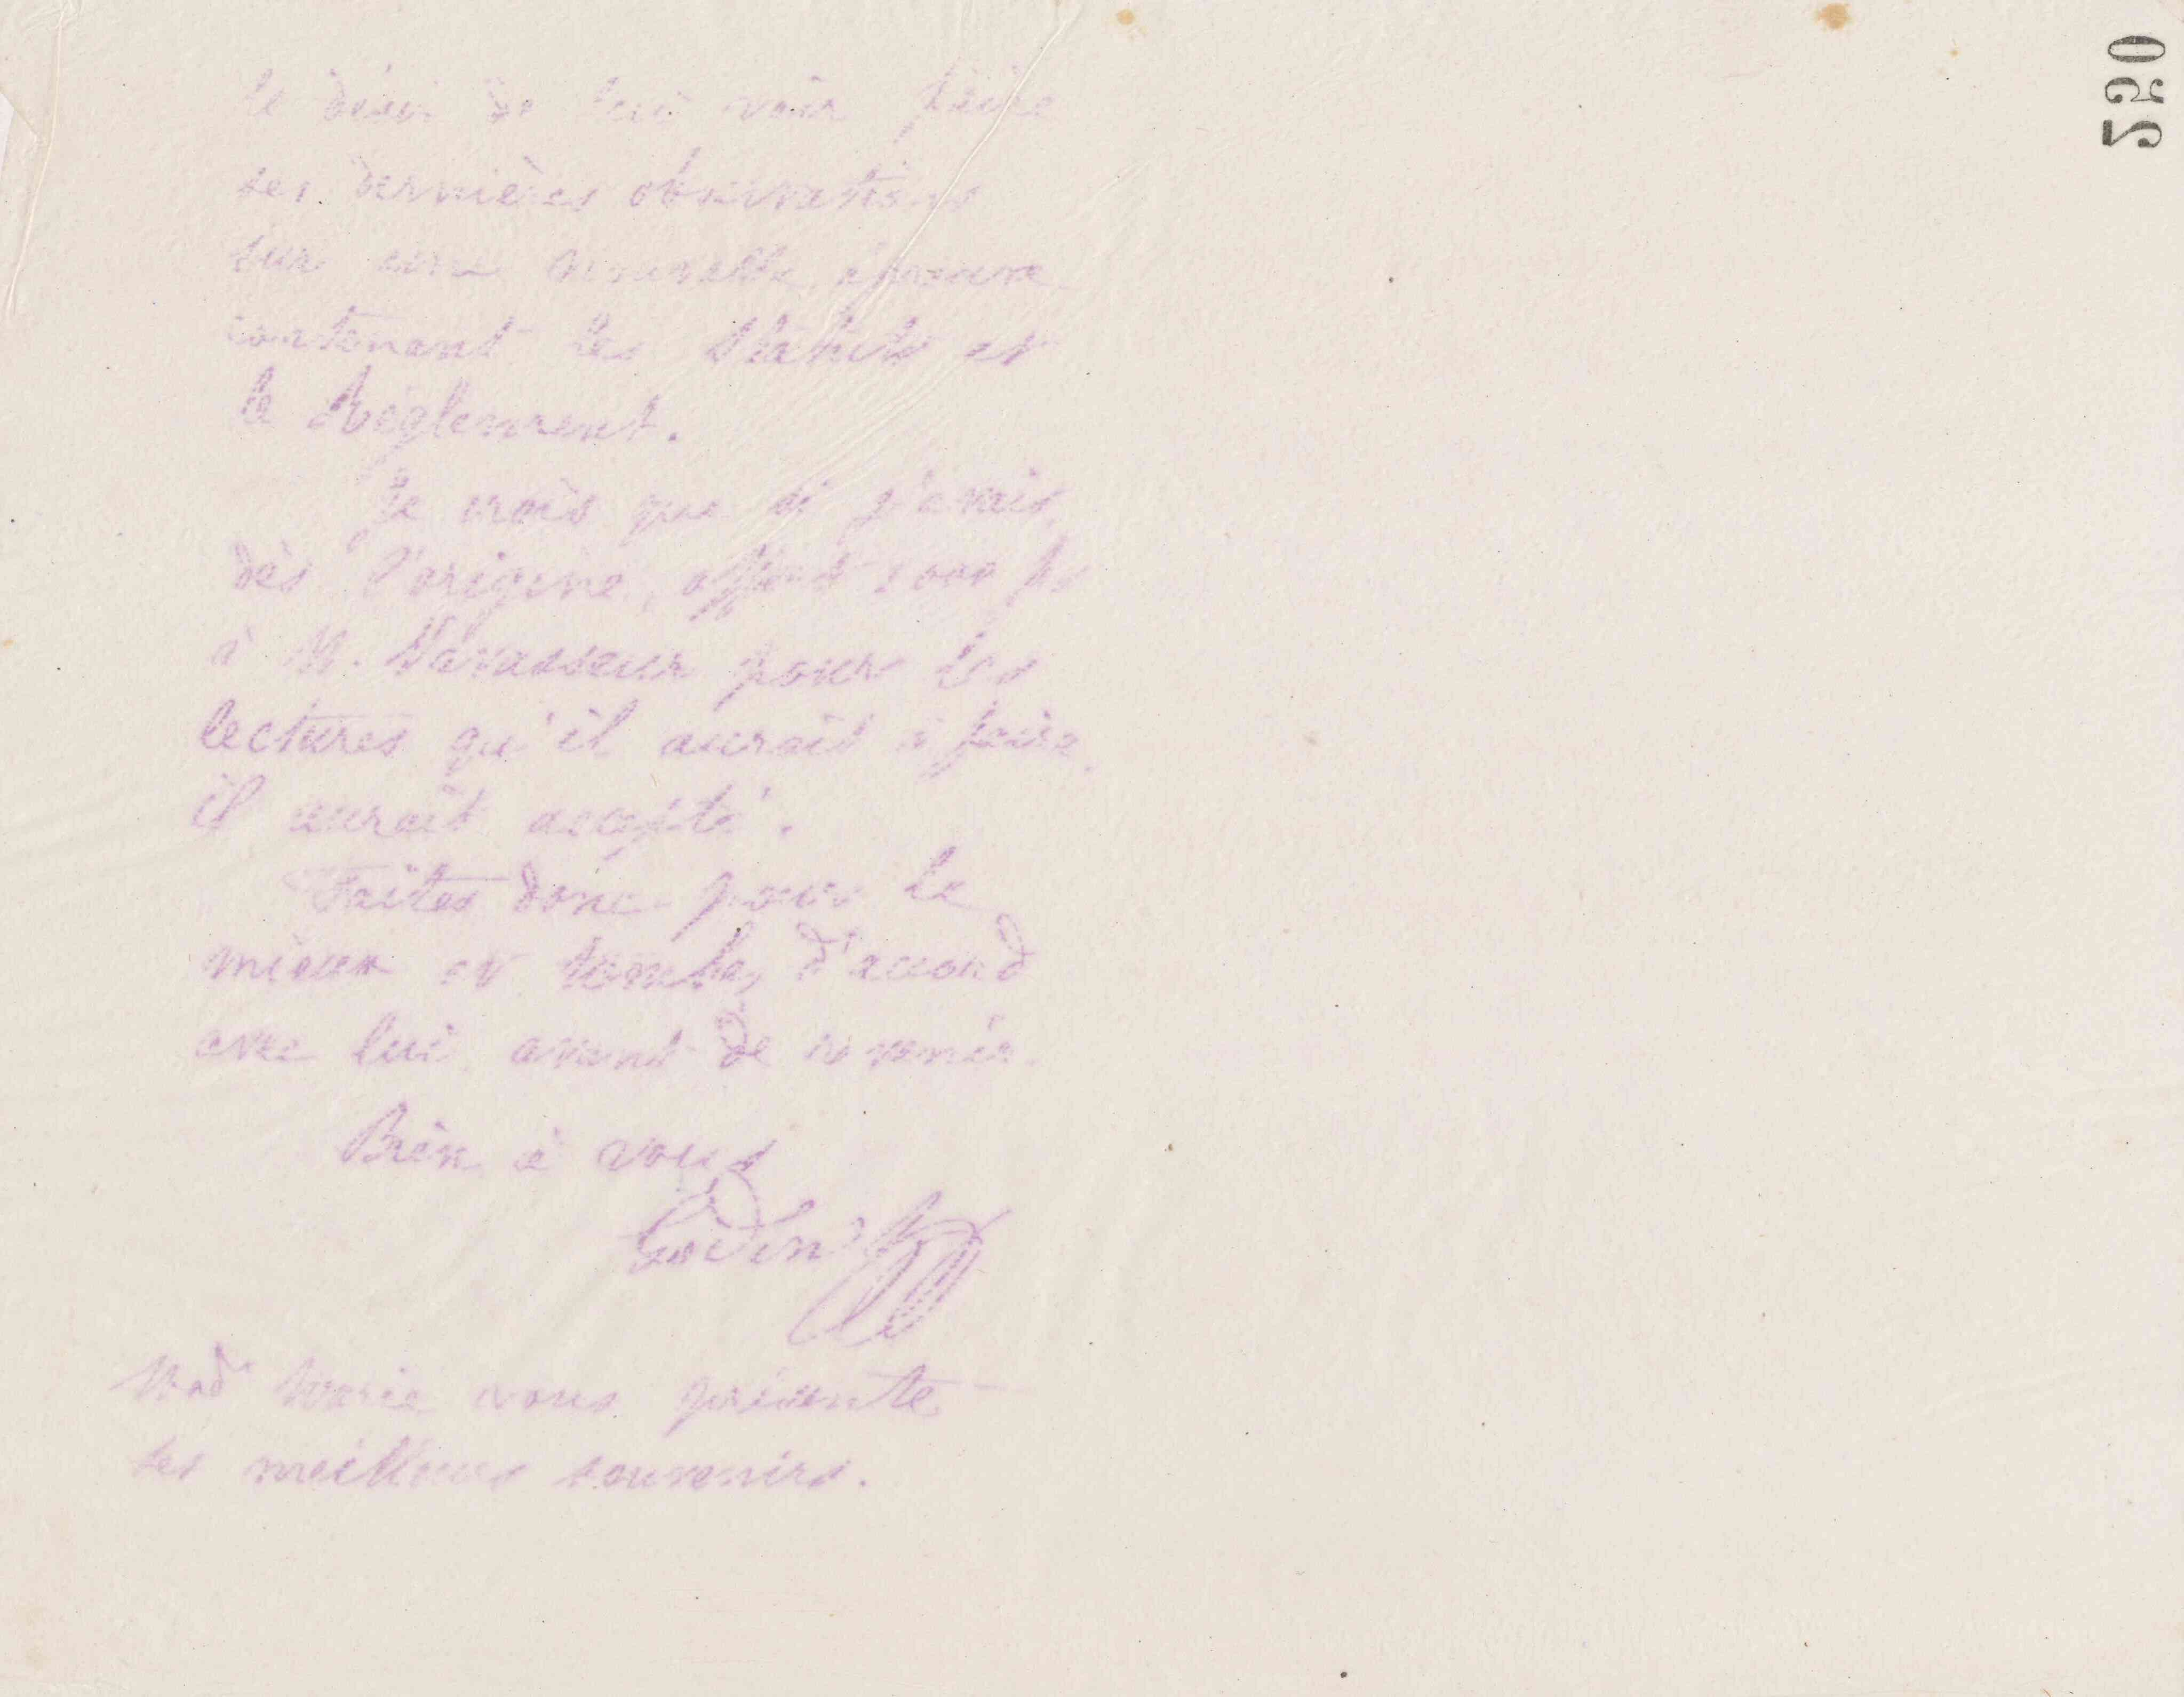 le désir de lui voir faire
ses dernières observations
sur une nouvelle épreuve
contenant les Statuts et
le Règlement.
Je crois que si j'avais,
dès l'origine, offert 1000 frs
à M. Vavasseur pour les
lectures qu'il aurait à faire,
il aurait accepté.
Faites donc pour le
mieux et tombez d'accord
avec lui avant de revenir.
Bien à vous
Godin
Mad. Marie vous présente
ses meilleurs souvenirs.
520